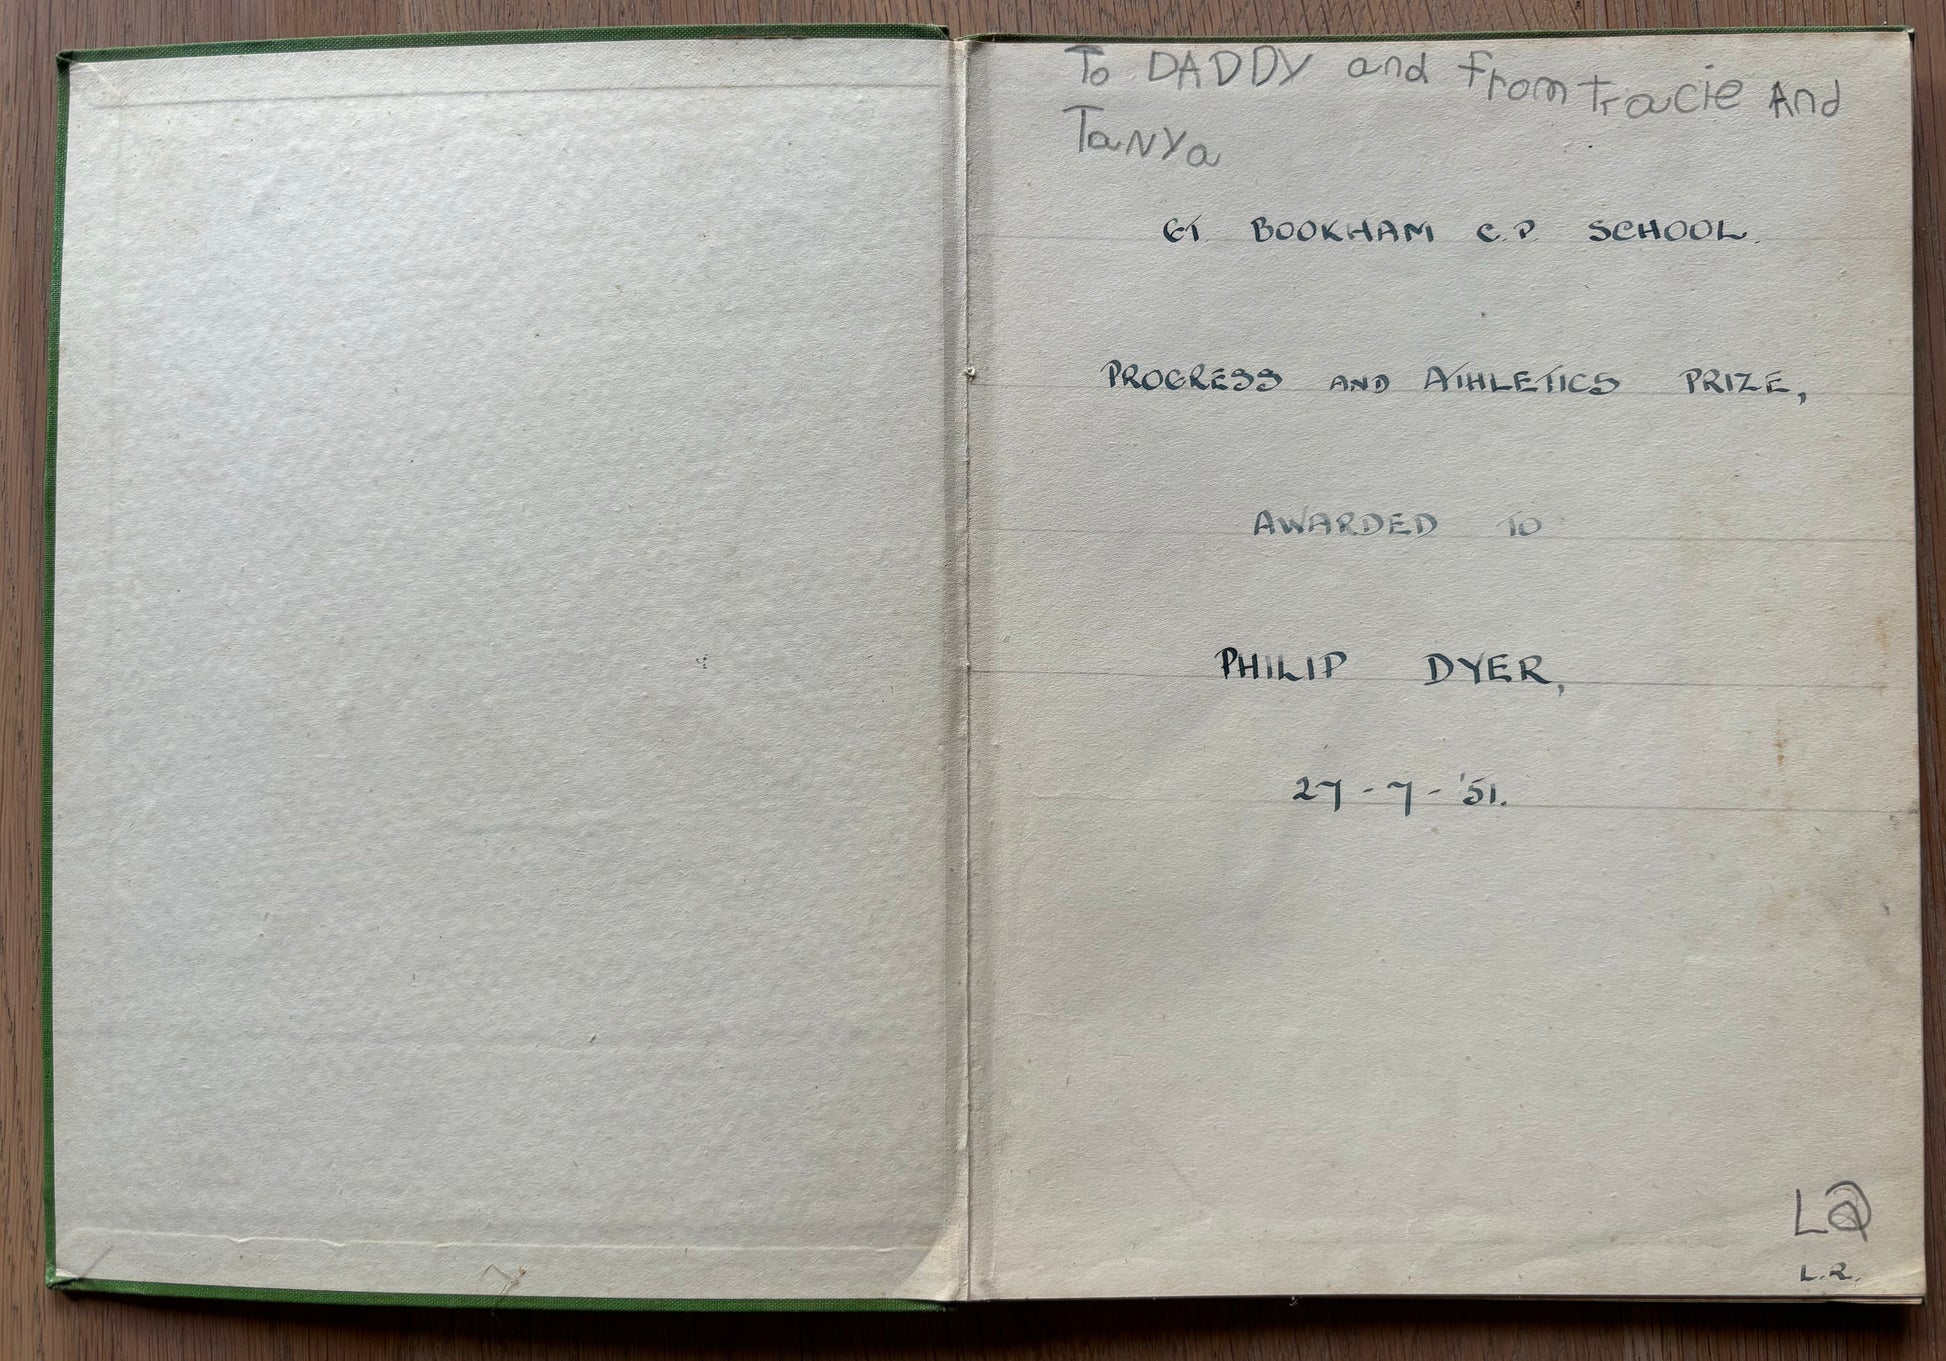 To DADDY and from tracie And
TaNYa
GT. BOOKHAM C.P. SCHOOL.
PROGRESS AND ATHLETICS PRIZE,
AWARDED TO
PHILIP DYER,
27-7-'51.
L.R.